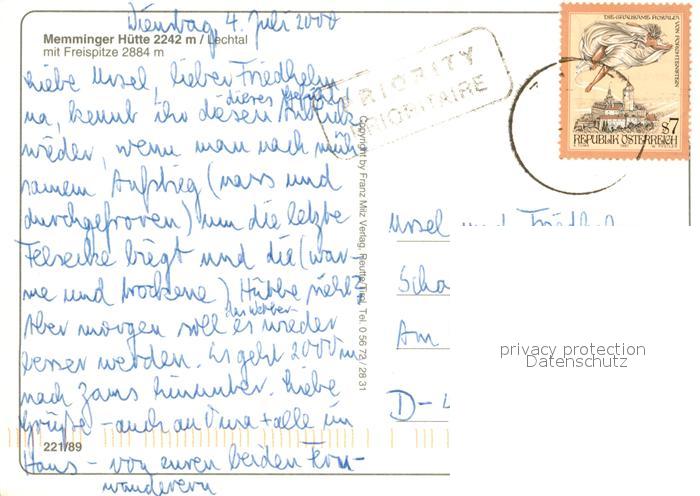 Dienstag 4. Juli 2000
Memminger Hütte 2242 m / Lechtal
mit Freispitze 2884 m
Liebe Ursel, lieber Friedhelm
dieses Gefühl
na, kennt ihr diesen Anblick
wieder, wenn man nach müh-
samem Aufstieg (nass und
durchgefroren) um die letzte
Felsecke biegt und die (war-
me und trockene) Hütte sieht?
das Wetter
Aber morgen soll es wieder
besser werden. Es geht 2000 m
nach Zams hinunter. Liebe
Grüße – auch an Oma + alle im
221/89
Haus – von euren beiden Fern-
wanderern
PRIORITY
PRIORITAIRE
Copyright by Franz Milz Verlag, Reutte/Tirol, Tel. 0 56 72 / 28 31
DIE GRAUSAME ROSALIA
VON FORCHTENSTEIN
S 7
REPUBLIK ÖSTERREICH
Ursel und Friedhel
Scha
Am
D-
privacy protection
Datenschutz